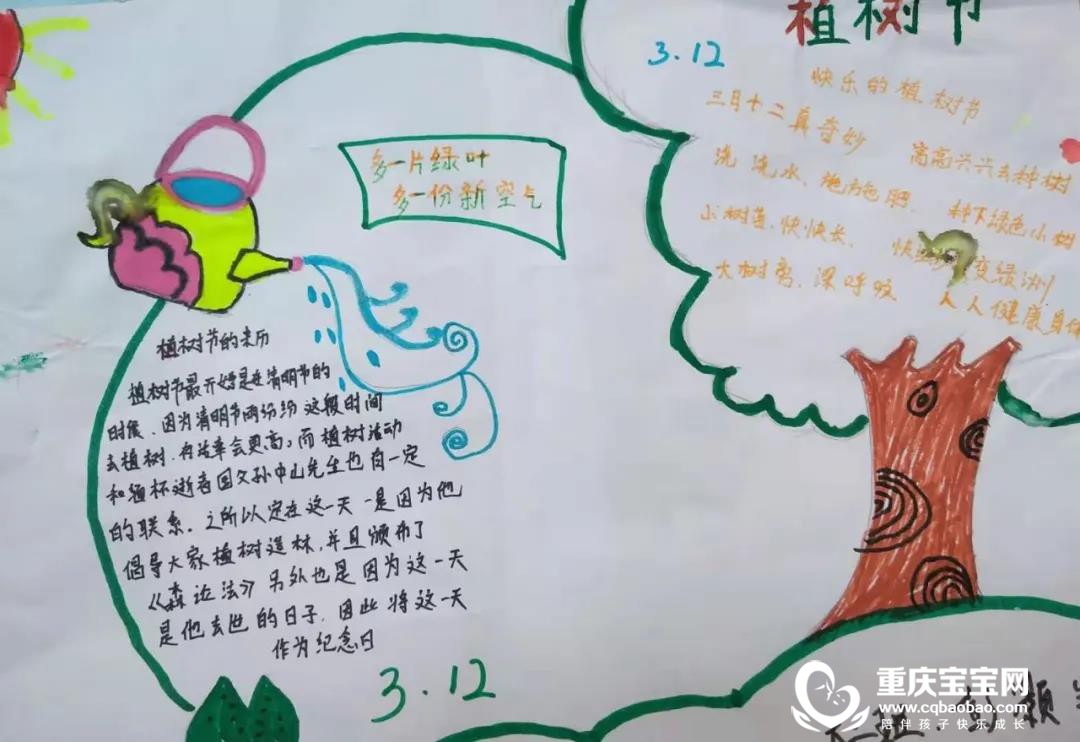 植树节
3.12
快乐的植树节
三月十二真奇妙 高高兴兴去种树
浇浇水、施施肥、种下绿色小树
小树苗、快快长、快 变绿洲
大树离、深呼吸 人人健康身体
多一片绿叶
多一份新空气
植树节的来历
植树节最开始是在清明节的
时候、因为清明节雨纷纷 这段时间
去植树、存活率会更高，而植树活动
和缅怀逝者国父孙中山先生也有一定
的联系。之所以定在这一天 一是因为他
倡导大家植树造林,并且颁布了
《森 法》另外也是因为这一天
是他去世的日子,因此将这一天
作为纪念日
3.12
重庆宝宝网
www.cqbaobao.com
陪伴孩子快乐成长
颖